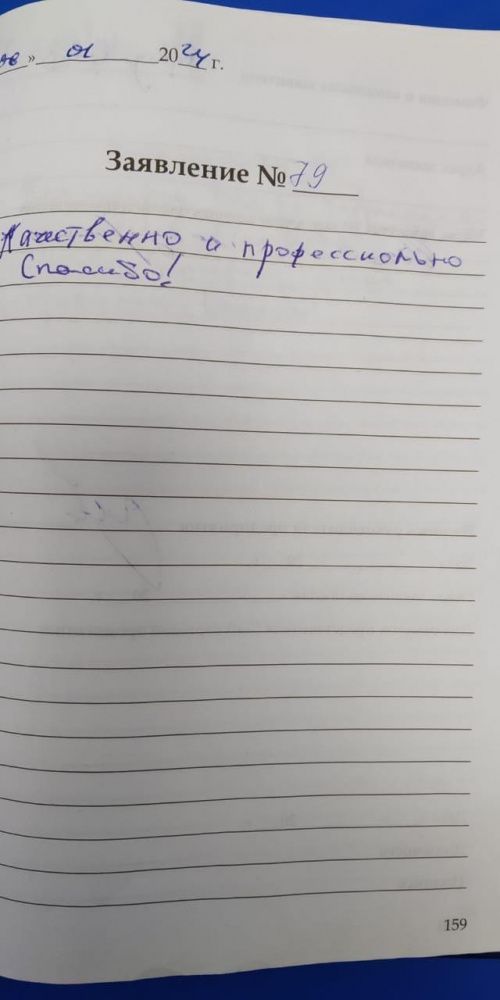 » 01 2024 г.
Заявление № 79
Качественно и профессиольно
Спасибо!
159